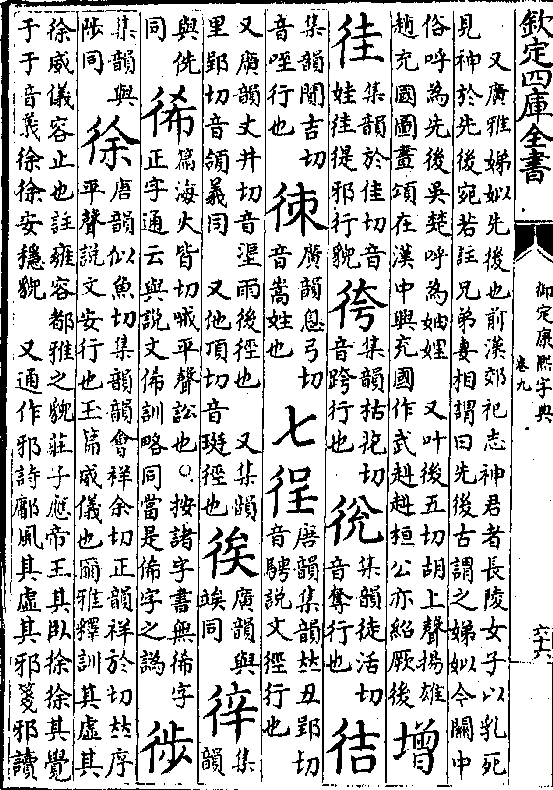 欽定四庫全書
御定康熙字典
卷九
六十六
又廣雅娣姒先後也前漢郊祀志神君者長陵女子以乳死
見神於先後宛若註兄弟妻相謂曰先後古謂之娣姒今關中
俗呼為先後吳楚呼為妯娌 又叶後五切胡上聲揚雄
趙充國圖畫頌在漢中興充國作武赳赳桓公亦紹厥後
增
徍
集韻於佳切音
娃徍徥邪行貌
集韻枯瓦切
音跨行也
集韻徒活切
音奪行也
集韻闃吉切
音咥行也
廣韻息弓切
音嵩姓也
七
徎
唐韻集韻𠀤丑郢切
音騁說文徑行也
又廣韻丈井切音 雨後徑也 又集韻
里郢切音領義同 又他頂切音珽徑也
廣韻與
竢同
集韻
與侁
同
篇海火皆切 平聲訟也○按諸字書無 字
正字通云與說文俙訓略同當是俙字之譌
徏
集韻與
陟同
徐
唐韻似魚切集韻韻會祥余切正韻祥於切𠀤序
平聲說文安行也玉篇威儀也爾雅釋訓其虛其
徐威儀容止也註雍容都雅之貌莊子應帝王其臥徐徐其覺
于于音義徐徐安穩貌 又通作邪詩鄘風其虛其邪箋邪讀